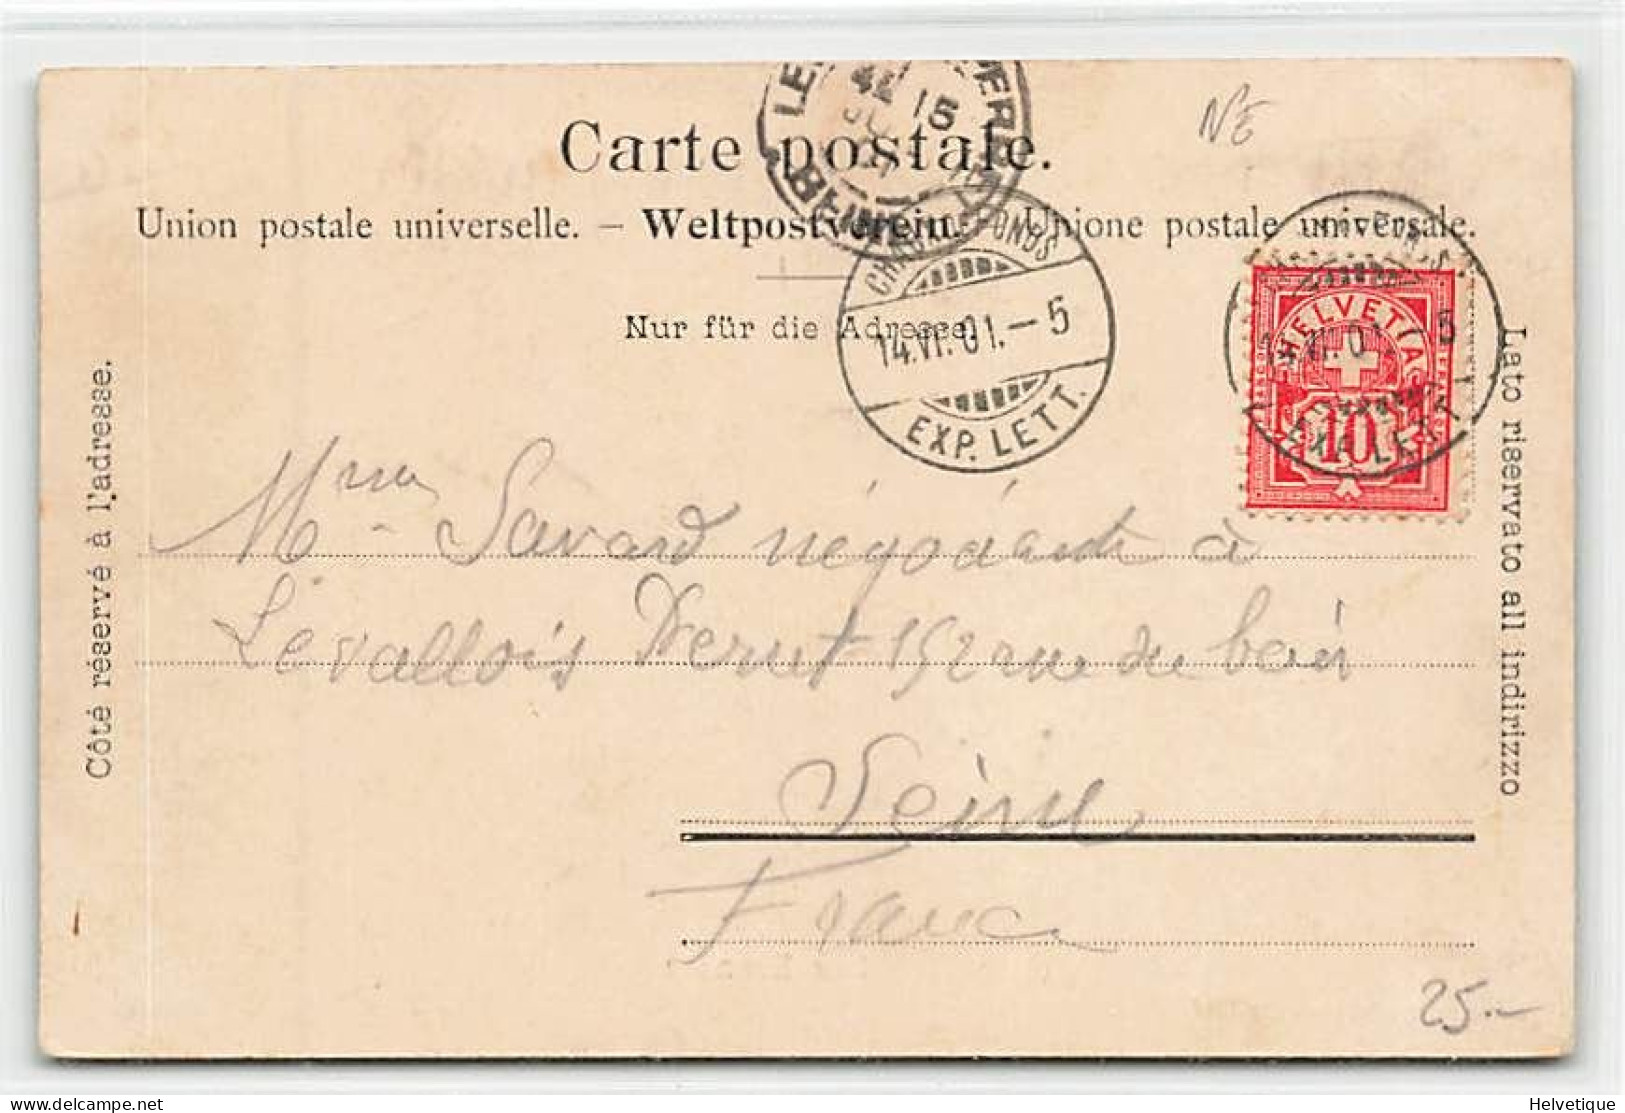 NE
Carte postale.
Union postale universelle. – Weltpostverein. – Unione postale universale.
Nur für die Adresse.
Côté réservé à l'adresse.
Lato riservato all indirizzo
15
CHAUX-DE-FONDS
14.VI.01.–5
EXP. LETT.
HELVETIA
10
14.VI.01 5
EXP. LETT.
Mme Savard négociante à
Levallois Perret 152 rue du
Seine
France
25.–
delcampe.net
Helvetique